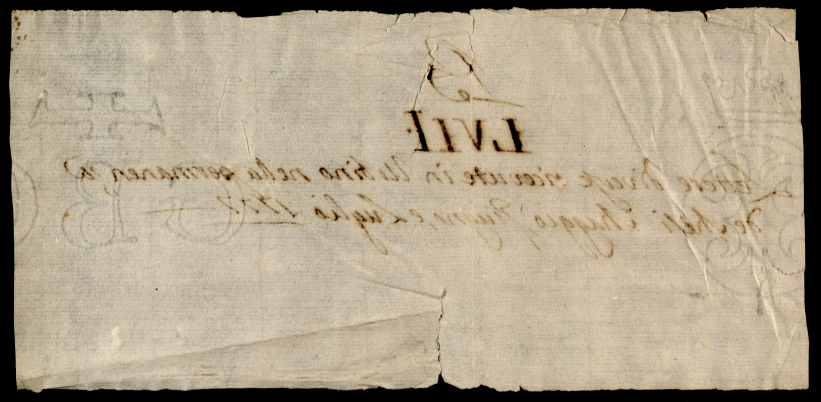 B
LVII.
Lettere diverse ricevute in Urbino nella permanenza
de' Mesi Maggio, Giugno, e Luglio